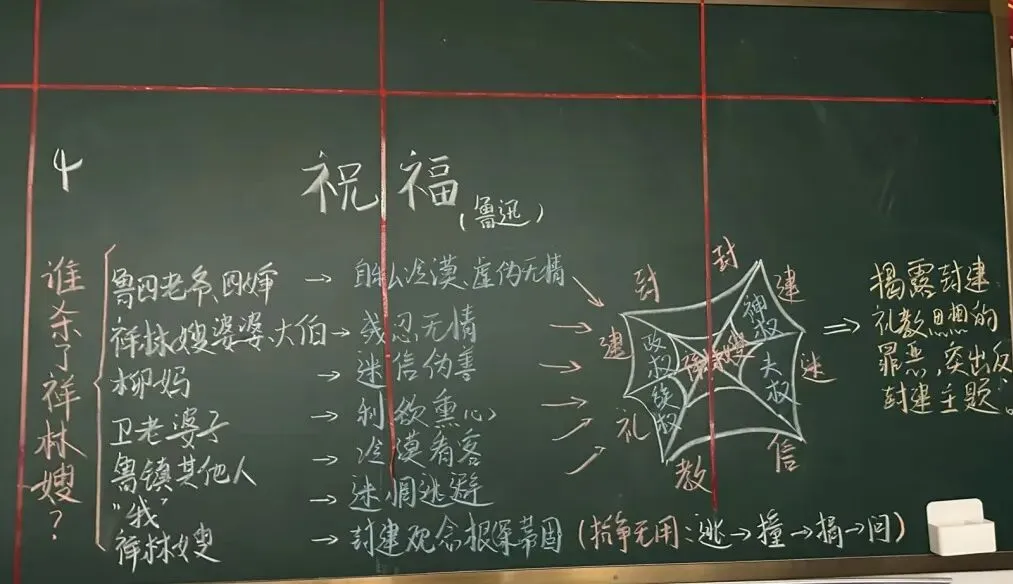 4
祝福
（鲁迅）
谁杀了祥林嫂？
鲁四老爷、四婶 → 自私冷漠、虚伪无情
祥林嫂婆婆、大伯 → 残忍无情
柳妈 → 迷信伪善
卫老婆子 → 利欲熏心
鲁镇其他人 → 冷漠看客
“我” → 迷惘逃避
祥林嫂 → 封建观念根深蒂固（抗争无用：逃→撞→捐→问）
封建礼教
封建迷信
政权
神权
族权
夫权
祥林嫂
⇒ 揭露封建
礼教思想的
罪恶，突出反
封建主题。